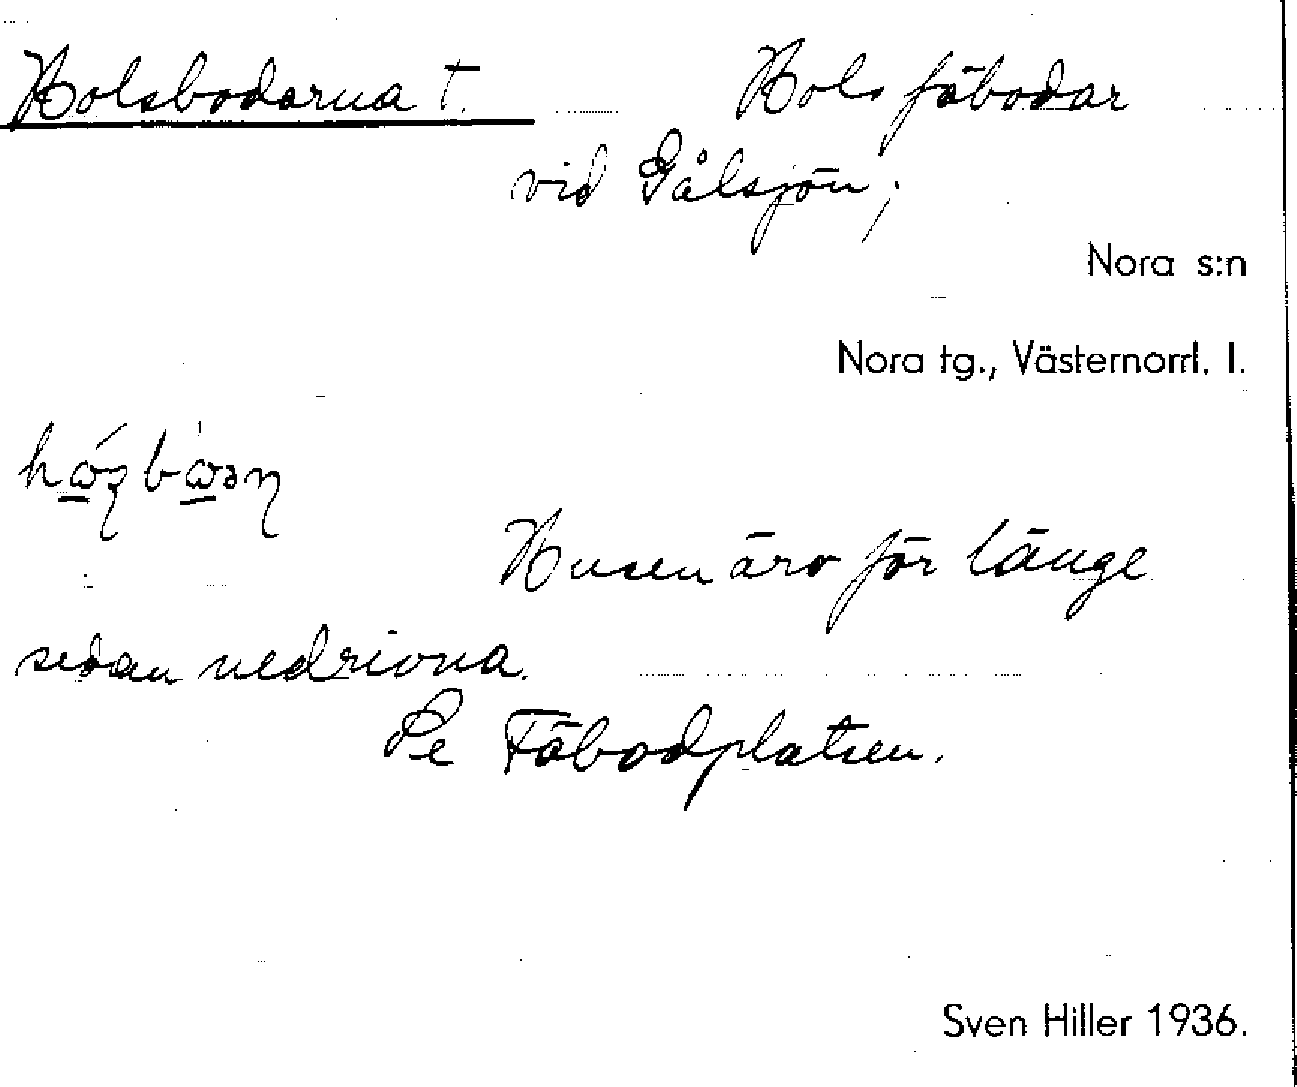 Holsbodarna †. Hols fäbodar
vid Gålsjön;
Nora s:n
Nora tg., Västernorrl. l.
Husen äro för länge
sedan nedrivna.
Se Fäbodplatsen.
Sven Hiller 1936.